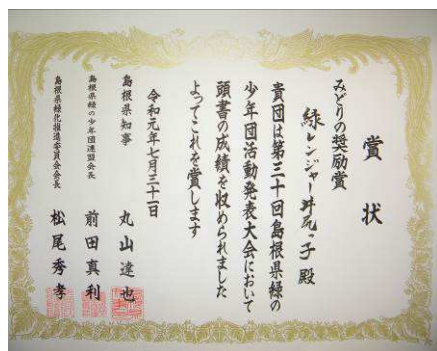 賞状
みどりの奨励賞
緑レンジャー井尻っ子 殿
貴団は第三十回島根県緑の
少年団活動発表大会において
頭書の成績を収められました
よってこれを賞します
令和元年七月三十一日
島根県知事 丸山達也
島根県緑の少年団連盟会長 前田真利
島根県緑化推進委員会会長 松尾秀孝